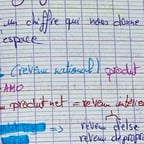 un chiffre qui nous donne
l'espace
(revenu national) produit
AMO
produit net = revenu intérieu
=> revenu d'else
revenu de propri